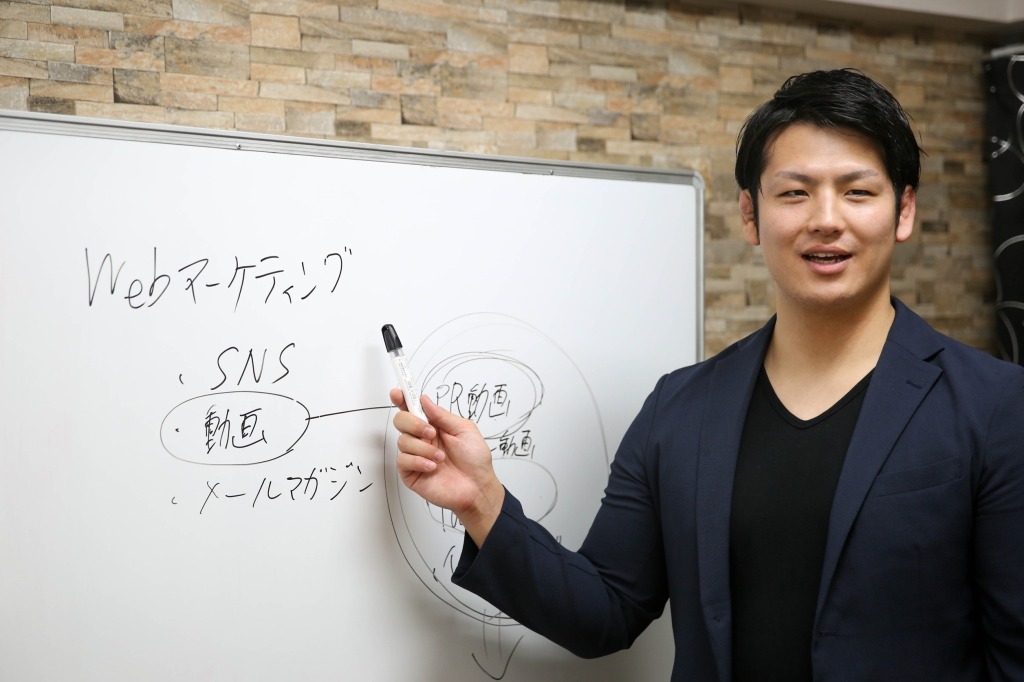 Webマーケティング
・SNS
・動画
・メールマガジン
PR動画
動画